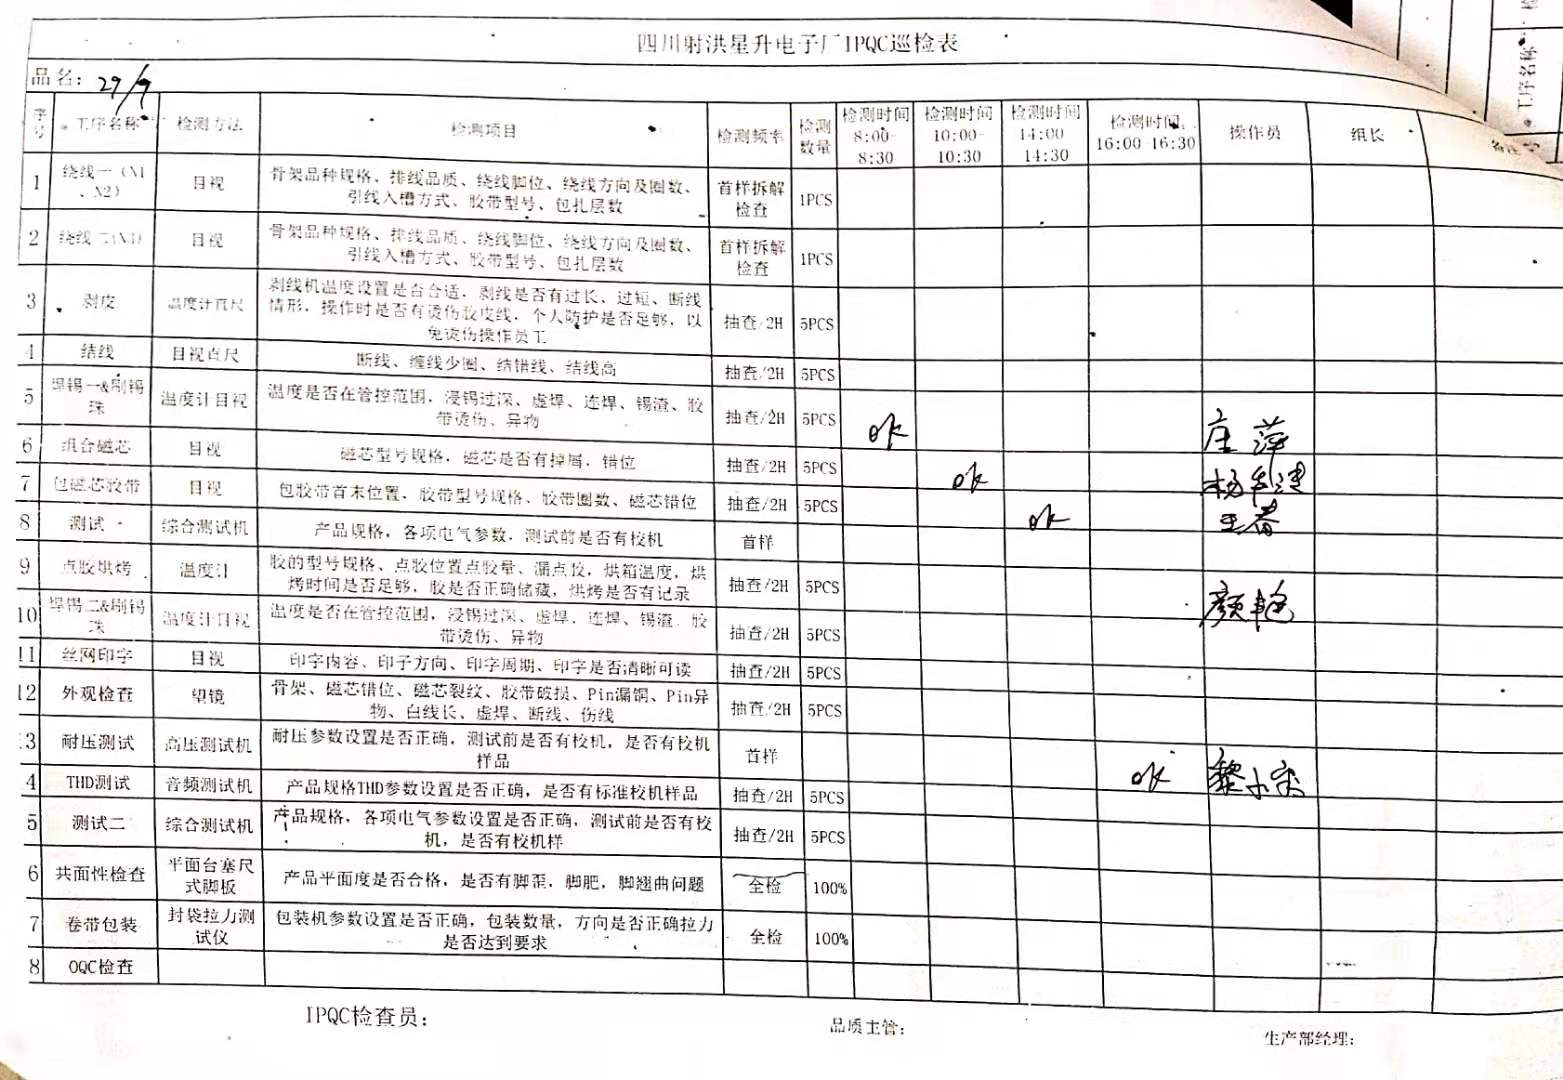 四川射洪星升电子厂IPQC巡检表
品名: 29/9
序号 工序名称 检测方法 检测项目 检测频率 检测数量 检测时间8:00-8:30 检测时间10:00-10:30 检测时间14:00 14:30 检测时间16:00 16:30 操作员 组长
1 绕线一(N1、N2) 目视 骨架品种规格、排线品质、绕线脚位、绕线方向及圈数、引线入槽方式、胶带型号、包扎层数 首样拆解检查 1PCS
2 绕线二(N3) 目视 骨架品种规格、排线品质、绕线脚位、绕线方向及圈数、引线入槽方式、胶带型号、包扎层数 首样拆解检查 1PCS
3 剥皮 温度计直尺 剥线机温度设置是否合适，剥线是否有过长、过短、断线情形，操作时是否有烫伤胶皮线，个人防护是否足够，以免烫伤操作员工 抽查/2H 5PCS
4 结线 目视直尺 断线、缠线少圈、结错线、结线高 抽查/2H 5PCS
5 焊锡一&刷锡珠 温度计目视 温度是否在管控范围，浸锡过深、虚焊、连焊、锡渣、胶带烫伤、异物 抽查/2H 5PCS ok 庄萍
6 组合磁芯 目视 磁芯型号规格，磁芯是否有掉屑，错位 抽查/2H 5PCS ok 杨
7 包磁芯胶带 目视 包胶带首末位置，胶带型号规格、胶带圈数、磁芯错位 抽查/2H 5PCS ok 王春
8 测试 综合测试机 产品规格，各项电气参数，测试前是否有校机 首样
9 点胶烘烤 温度计 胶的型号规格、点胶位置点胶量、漏点胶，烘箱温度，烘烤时间是否足够，胶是否正确储藏，烘烤是否有记录 抽查/2H 5PCS 颜艳
10 焊锡二&刷锡珠 温度计目视 温度是否在管控范围，浸锡过深、虚焊、连焊、锡渣、胶带烫伤、异物 抽查/2H 5PCS
11 丝网印字 目视 印字内容、印子方向、印字周期、印字是否清晰可读 抽查/2H 5PCS
12 外观检查 望镜 骨架、磁芯错位、磁芯裂纹、胶带破损、Pin漏铜、Pin异物、白线长、虚焊、断线、伤线 抽查/2H 5PCS
3 耐压测试 高压测试机 耐压参数设置是否正确，测试前是否有校机，是否有校机样品 首样 ok 黎小
4 THD测试 音频测试机 产品规格THD参数设置是否正确，是否有标准校机样品 抽查/2H 5PCS
5 测试二 综合测试机 产品规格，各项电气参数设置是否正确，测试前是否有校机，是否有校机样 抽查/2H 5PCS
6 共面性检查 平面台塞尺式脚板 产品平面度是否合格，是否有脚歪，脚肥，脚翘曲问题 全检 100%
7 卷带包装 封袋拉力测试仪 包装机参数设置是否正确，包装数量，方向是否正确拉力是否达到要求 全检 100%
8 OQC检查
IPQC检查员: 品质主管: 生产部经理:
工序名称